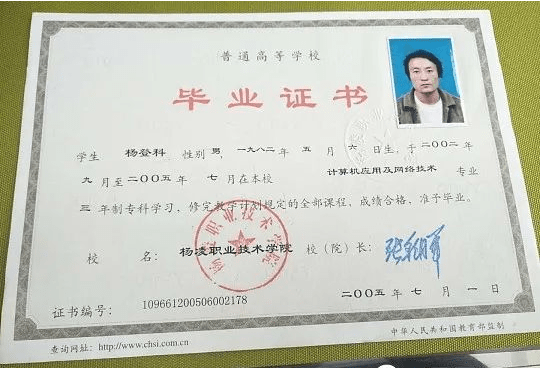 普通高等学校
毕业证书
学生 杨登科 性别 男，一九八二年 五 月 六 日生，于二〇〇二年
九 月至二〇〇五年 七 月在本校 计算机应用及网络技术 专业
三 年制专科学习，修完教学计划规定的全部课程，成绩合格，准予毕业。
校 名：杨凌职业技术学院 校（院）长：
杨凌职业技术学院
二〇〇五年 七 月 一 日
证书编号：109661200506002178
中华人民共和国教育部监制
查询网址：http://www.chsi.com.cn